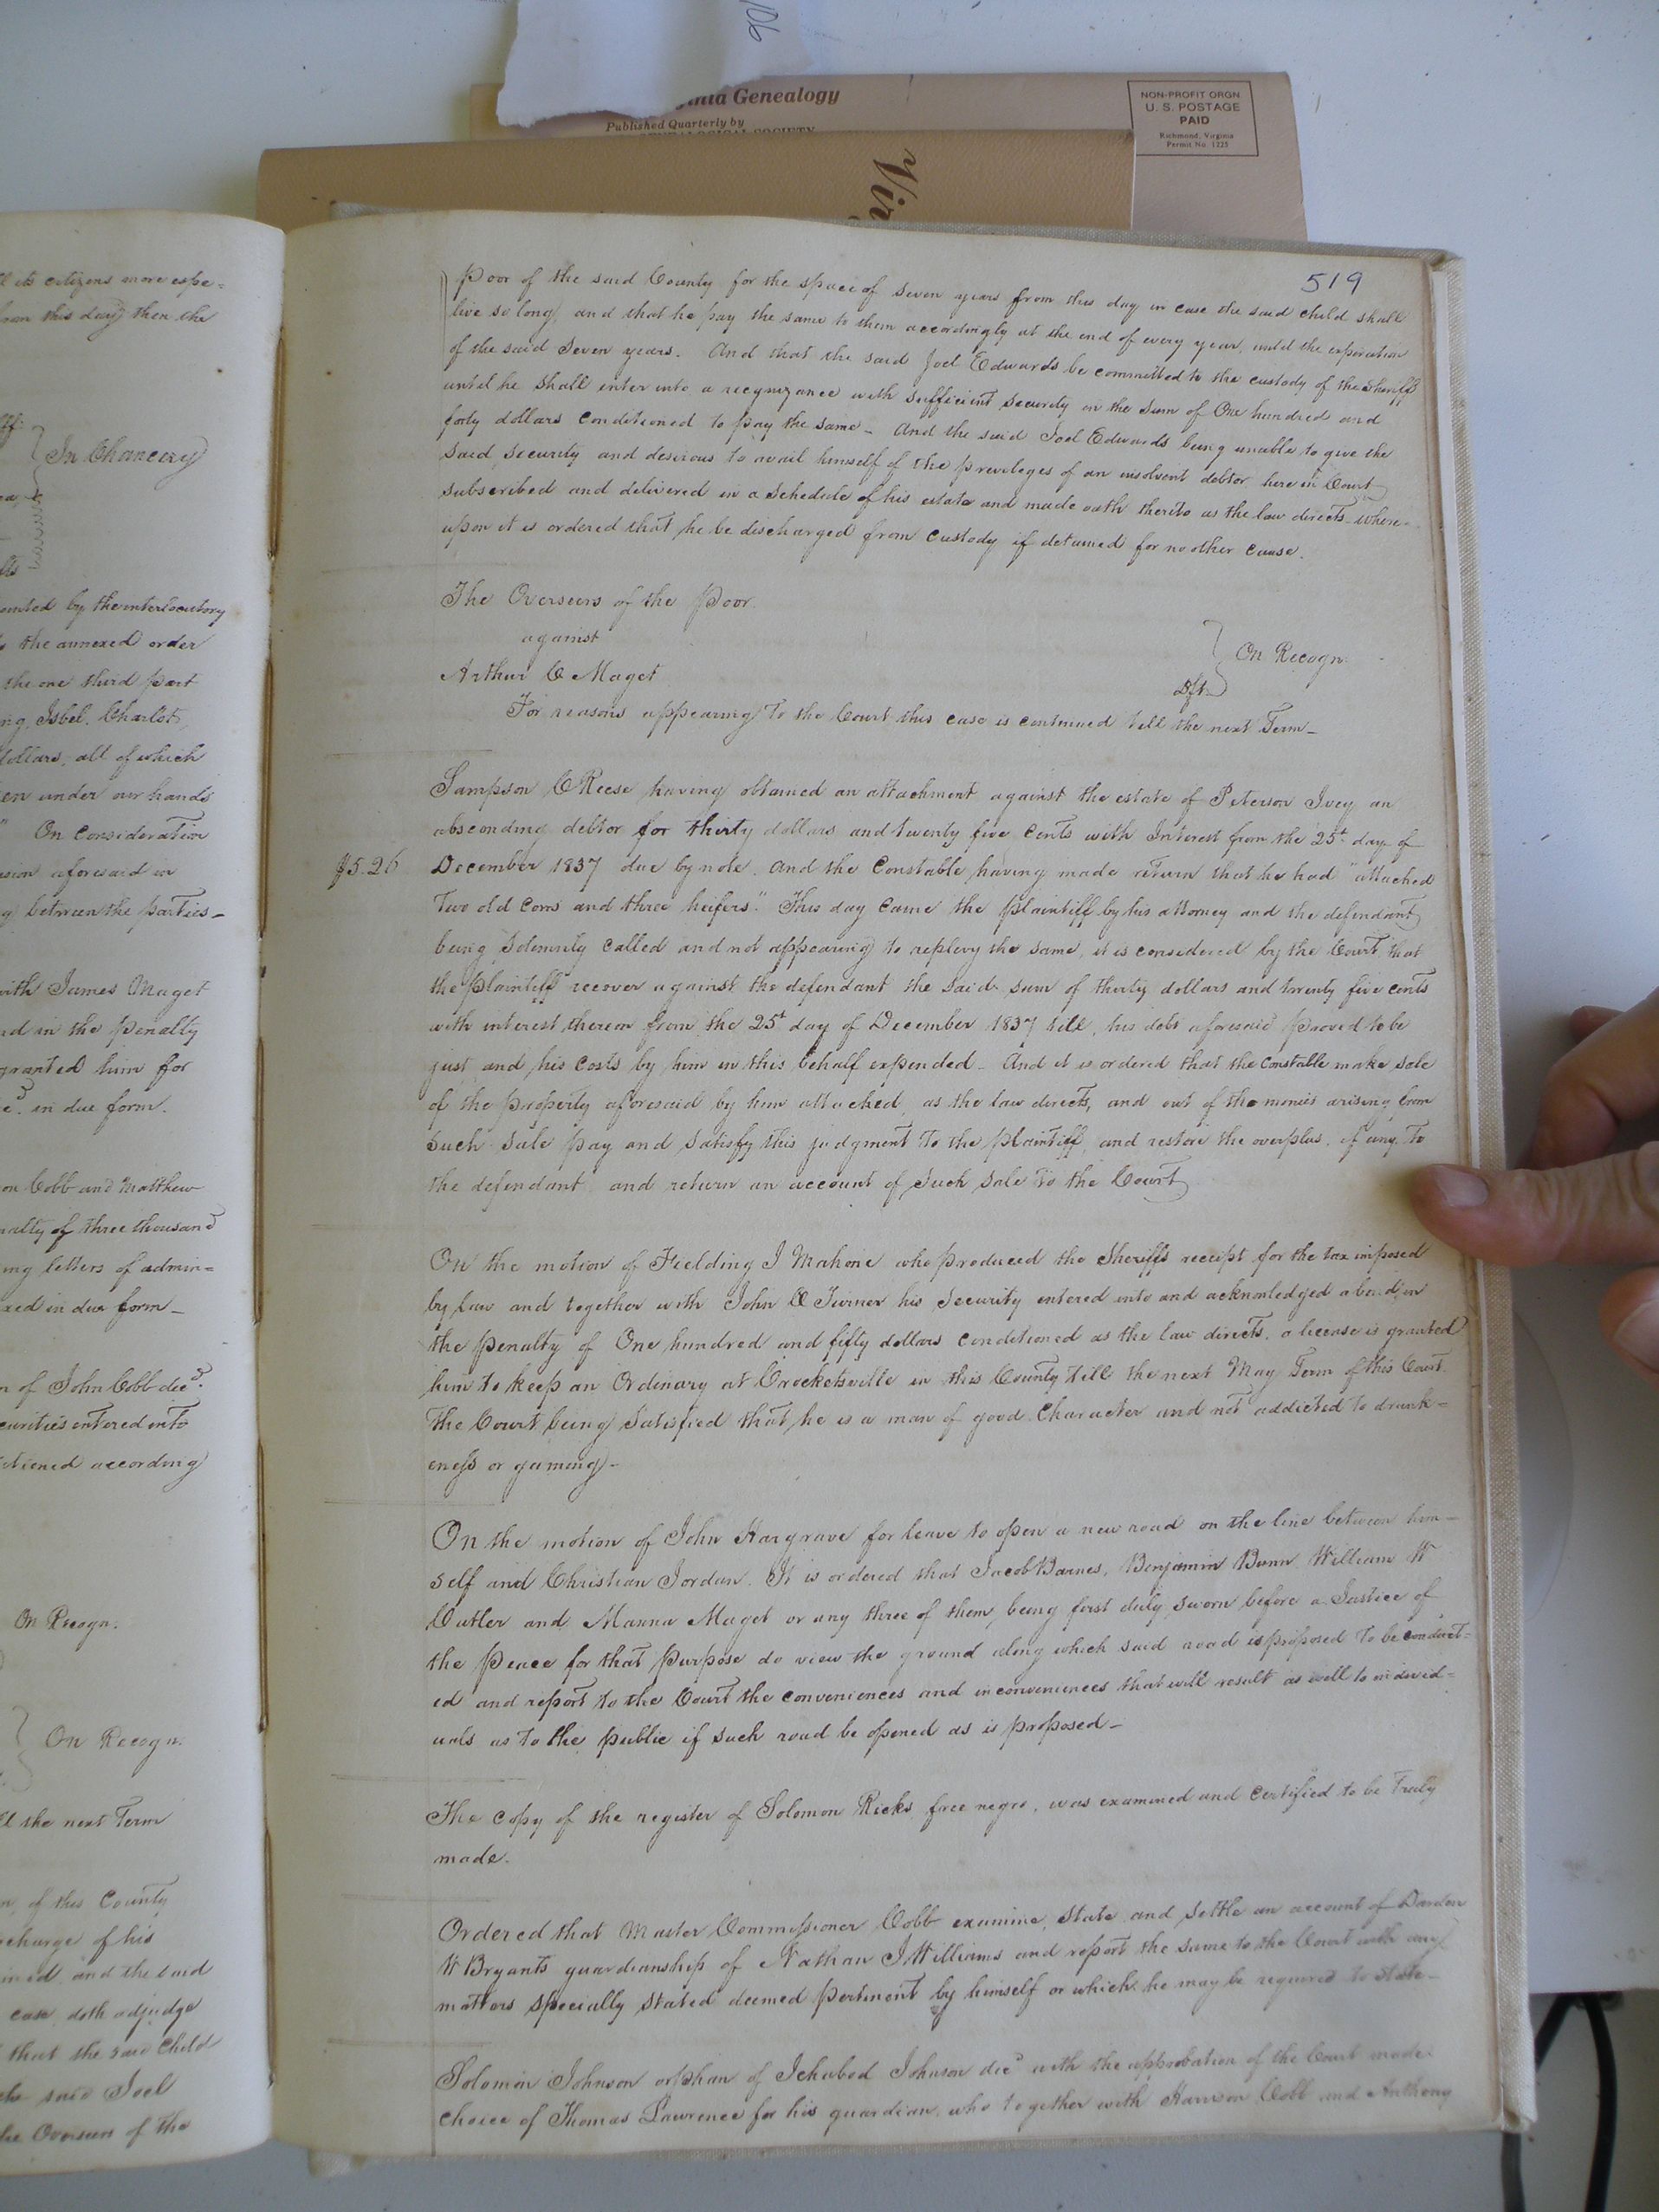 106
Virginia Genealogy
Published Quarterly by
GENEALOGICAL SOCIETY
NON-PROFIT ORGN
U. S. POSTAGE
PAID
Richmond, Virginia
Permit No. 1225
Vir
l its citizens more espe=
from this day) then the
In Chancery
ented by the interlocutory
the annexed order
the one third part
ng, Isbel, Charlot,
dollars, all of which
en under our hands
" On Consideration
sion aforesaid in
g between the parties_
with James Maget
nd in the penalty
granted him for
in due form.
on Cobb and Matthew
nalty of three thousand
ing letters of admin=
xed in due form_
n of John Cobb decd.
curities entered into
tioned according
On Recogn.
On Recogn.
ll the next Term
n, of this County
charge of his
ined, and the said
case, doth adjudge
that the said Child
the said Joel
the Overseers of the
519
Poor of the said County for the space of seven years from this day in case the said child shall
live so long, and that he pay the same to them accordingly at the end of every year, until the expiration
of the said Seven years. And that the said Joel Edwards be committed to the custody of the Sheriff
until he shall enter into a recognizance with sufficient security in the sum of One hundred and
forty dollars conditioned to pay the same_ And the said Joel Edwards being unable to give the
said security and desirous to avail himself of the previleges of an insolvent debtor here in Court
subscribed and delivered in a schedule of his estate and made oath thereto as the law directs_ where=
upon it is ordered that he be discharged from custody if detained for no other cause.
The Overseers of the Poor
against
On Recogn.
Arthur C Maget
Dft.
For reasons appearing to the Court this case is continued till the next Term_
Sampson C Reese having obtained an attachment against the estate of Peterson Ivey an
absconding debtor for thirty dollars and twenty five cents with Interest from the 25t day of
$5.26
December 1837 due by note. And the Constable having made return that he had "attached
Two old Cows and three heifers." This day came the plaintiff by his attorney and the defendant
being solemnly called and not appearing to replevy the same, it is considered by the Court, that
the plaintiff recover against the defendant the said sum of thirty dollars and twenty five cents
with interest thereon from the 25t day of December 1837 till, his debt aforesaid proved to be
just, and his costs by him in this behalf expended_ And it is ordered that the Constable make sale
of the property aforesaid by him attached, as the law directs, and out of the monies arising from
such sale pay and satisfy this judgment to the plaintiff, and restore the overplus, if any, to
the defendant and return an account of such sale to the Court
On the motion of Fielding J Mahone who produced the Sheriffs receipt for the tax imposed
by law and together with John Q Turner his security entered into and acknowledged a bond in
the penalty of One hundred and fifty dollars conditioned as the law directs, a license is granted
him to keep an Ordinary at Crocketsville in this County till the next May Term of this Court.
The Court being satisfied that he is a man of good Character and not addicted to drunk=
eness or gaming_
On the motion of John Hargrave for leave to open a new road on the line between him=
self and Christian Jordan. It is ordered that Jacob Barnes, Benjamin Bunn William W
Cutler and Manna Maget or any three of them, being first duly sworn before a Justice of
the Peace for that purpose do view the ground along which said road is proposed to be conduct=
ed and report to the Court the conveniences and inconveniences that will result as well to individ=
uals as to the public if such road be opened as is proposed_
The copy of the register of Solomon Ricks free negro, was examined and certified to be truly
made.
Ordered that Master Commissioner Cobb examine, state and settle an account of Darden
W Bryants guardianship of Nathan J Williams and report the same to the Court with any
matters specially stated deemed pertinent by himself or which he may be required to state_
Solomon Johnson orphan of Ichabod Johnson decd with the approbation of the Court made
choice of Thomas Lawrence for his guardian, who together with Harrison Cobb and Anthony